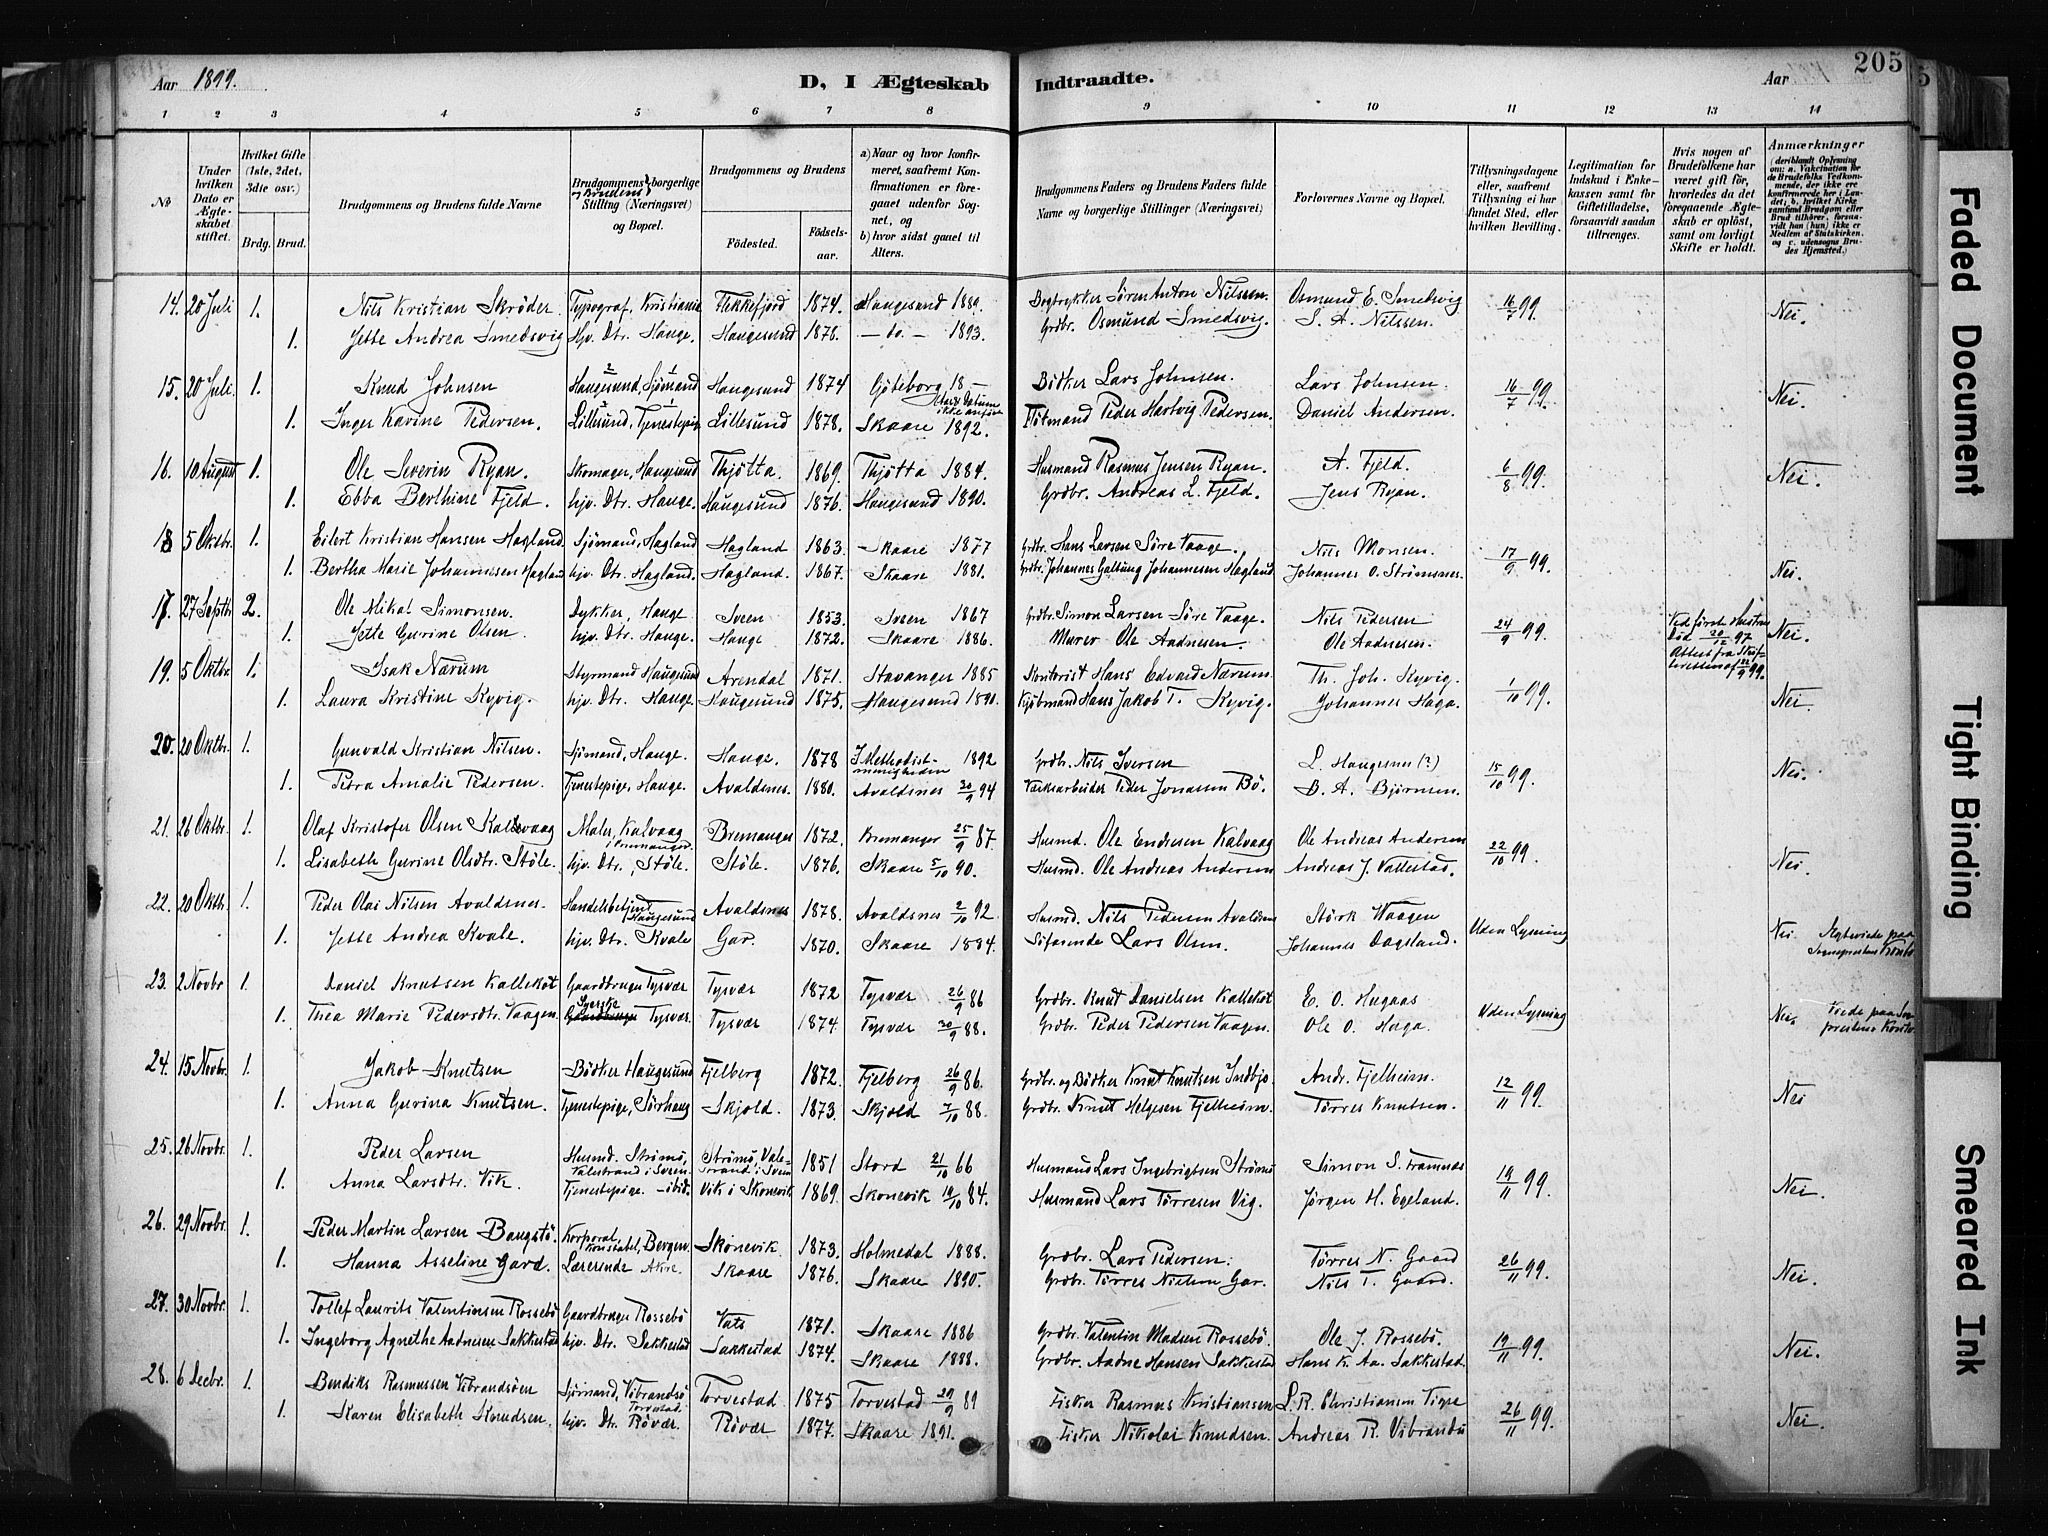 Aar 1899.
D, I Ægteskab Indtraadte.
Aar
205
5
1 2 3 4 5 6 7 8 9 10 11 12 13 14
No
Under hvilken Dato er Ægteskabet stiftet.
Hvilket Gifte (1ste, 2det, 3die osv.)
Brdg. Brud.
Brudgommens og Brudens fulde Navne
Brudgommens og Brudens borgerlige Stilling (Næringsvei) og Bopæl.
Brudgommens og Brudens
Födested.
Födselsaar.
a) Naar og hvor konfirmeret, saafremt Konfirmationen er foregaaet udenfor Sognet, og
b) hvor sidst gaaet til Alters.
Brudgommens Faders og Brudens Faders fulde Navne og borgerlige Stillinger (Næringsvei)
Forlovernes Navne og Bopæl.
Tillysningsdagene eller, saafremt Tillysning ei har fundet Sted, efter hvilken Bevilling.
Legitimation for Indskud i Enkekassen samt for Giftetilladelse, forsaavidt saadan tiltrænges.
Hvis nogen af Brudefolkene har været gift før, hvorledes da det foregaaende Ægteskab er opløst, samt om lovligt Skifte er holdt.
Anmærkninger
14. 20 Juli 1. Nils Kristian Skröder. Typograf, Kristiania Flekkefjord 1874. Haugesund 1889. Bogtrykker Sören Anton Nilssen. Osmund E. Smedsvig 16/7 99. Nei.
1. Jette Andrea Smedsvig Hjv. Dtr. Hauge. Haugesund 1878. — do — 1893. Grdbr. Osmund Smedsvig. S. A. Nilssen.
15. 20 Juli. 1. Knud Johnsen Haugesund, Sjömand Haugesund 1874 Göteborg 18— Bödker Lars Johnsen. Lars Johnsen. 16/7 99. Nei.
1. Inger Karine Pedersen. Lillesund, Tjenestepige Lillesund 1878. Skaare 1892. Peder Hartvig Pedersen. Daniel Andersen.
16. 10 August 1. Ole Severin Ryan. Skomager, Haugesund Thjötta. 1869. Thjötta 1884. Husmand Rasmus Jensen Ryan. A. Fjeld. 6/8 99. Nei.
1. Ebba Berthine Fjeld. hjv. Dtr. Hauge. Haugesund 1876. Haugesund 1890. Grdbr. Andreas L. Fjeld. Jens Ryan.
18 5 Oktbr. 1. Eilert Kristian Hansen Hagland. Sjömand, Hagland Hagland 1863. Skaare 1877 Grdbr. Hans Larsen Söre Vaage. Nils Monsen. 17/9 99. Nei.
1. Bertha Marie Johannesen Hagland hjv. Dtr. Hagland. Hagland. 1867. Skaare 1881. Grdbr. Johannes Galtung Johannesen Hagland Johannes O. Strömsnes.
17. 27 Septb. 2. Ole Mikal Simonsen. Dykker, Hauge Sveen 1853. Sveen 1867 Grdbr. Simon Larsen Söre Vaage. Nils Pedersen 24/9 99. Ved første Hustrus Död 20/12 97 Attest fra Skifteretten af 22/9 99. Nei.
1. Jette Gurine Olsen hjv. Dtr. Hauge. Hauge 1872. Skaare 1886. Murer Ole Aadnesen. Ole Aadnesen.
19. 5 Oktbr. 1. Isak Nærum Styrmand Haugesund Arendal 1871. Stavanger 1885 Hans Edvard Nærum. Th. Joh. Kyvig. 1/10 99. Nei.
1. Laura Kristine Kyvig. hjv. Dtr. Hauge. Haugesund 1875. Haugesund 1890. Kjöbmand Hans Jakob T. Kyvig. Johannes Haga.
20. 20 Oktbr. 1. Gunvald Kristian Nilsen. Sjömand, Hauge. Hauge. 1878 I Methodistmenigheden 1892 Grdb. Nils Iversen L. Haugesnes (?) 15/10 99. Nei.
1. Petra Amalie Pedersen. Tjenestepige, Hauge. Avaldsnes 1880. Avaldsnes 30/9 94 Værksarbeider Peder Jonassen Bö. B. A. Björnsen.
21. 26 Oktbr. 1. Olaf Kristofer Olsen Kallevaag Maler, Kalvaag i Bremanger. Bremanger 1872. Bremanger 25/9 87. Husmd. Ole Endresen Kalvaag Ole Andreas Andersen 22/10 99. Nei.
1. Lisabeth Gurine Olsdtr. Stöle. hjv. Dtr., Stöle. Stöle. 1876. Skaare 5/10 90. Husmd. Ole Andreas Andersen Andreas J. Vallestad.
22. 20 Oktb. 1. Peder Olai Nilsen Avaldsnes. Handelsbetjent Haugesund Avaldsnes 1878. Avaldsnes 2/10 92. Husmd. Nils Pedersen Avaldsnes Störk Waagen Uden Lysning Nei
1. Jette Andrea Kvale. hjv. Dtr. Kvale Gar. 1870. Skaare 1884. Söfarende Lars Olsen. Johannes Dagsland.
23. 2 Novbr 1. Daniel Knutsen Kallekot Gaardbruger Tysvær Tysvær 1872 Tysvær 26/9 86 Grdbr. Knut Danielsen Kallekot E. O. Hugaas Uden Lysning Nei.
1. Thea Marie Pedersdtr. Vaagen. Syerske Tysvær. Tysvær 1874. Tysvær 30/9 88. Grdbr. Peder Pedersen Vaagen. Ole O. Haga.
24. 15 Novbr. 1. Jakob Knutsen Bödker Haugesund Fjelberg 1872. Fjelberg 26/9 86. Grdbr. og Bödker Knut Knutsen Indbjo. Andr. Fjelheim. 12/11 99. Nei
1. Anna Gurina Knutsen. Tjenestepige, Sörhaug Skjold. 1873. Skjold 7/10 88. Grdbr. Knut Helgesen Fjelheim. Törres Knutsen.
25. 26 Novbr. 1. Peder Larsen Husmd. Strömö, Valestrand i Sveen. Strömö, Valestrand i Sveen 1851 Stord 21/10 66 Husmand Lars Ingebrigtsen Strömö Simon S. Framnæs 19/11 99. Nei.
1. Anna Larsdtr. Vik. Tjenestepige. – ibid. Vik i Skonevik 1869. Skonevik 19/10 84. Husmand Lars Törresen Vig. Jörgen H. Egeland.
26. 29 Novbr. 1. Peder Martin Larsen Baugstö. Korporal, Konstabel, Bergen. Skönevik. 1873. Holmedal 1888. Grdbr. Lars Pedersen. Törres N. Gaard 26/11 99. Nei.
1. Hanna Asseline Gard. Lærerinde Akre. Skaare 1876. Skaare 1890. Grdbr. Törres Nielsen Gar. Nils T. Gaard.
27. 30 Novbr. 1. Tollef Laurits Valentinsen Rossebö Gaardbruger Rossebö Vats 1871. Skaare 1886 Grdbr. Valentin Madsen Rossebö. Ole J. Rossebö. 19/11 99. Nei.
1. Ingeborg Agnethe Aadnesen Sakkestad hjv. Dtr. Sakkestad Sakkestad 1874. Skaare 1888. Grdbr. Aadne Hansen Sakkestad Hans K. Aa. Sakkestad.
28. 6 Decbr. 1. Bendiks Rasmussen Vibrandsöen Sjömand, Vibrandsö Torvestad. Torvestad. 1875 Torvestad 29/9 89 Fisker Rasmus Kristiansen L. R. Christiansen 26/11 99. Nei.
1. Karen Elisabeth Knudsen. hjv. Dtr. Rövær. Rövær 1877. Skaare 1891. Fisker Nikolai Knudsen. Andreas R. Vibrandsö
Faded Document
Tight Binding
Smeared Ink